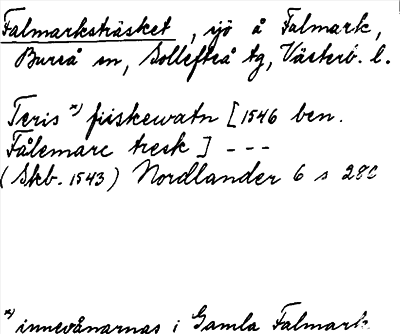 Falmarksträsket, sjö å Falmark,
Bureå sn, Skellefteå tg, Västerb. l.
Teris x) fiiskewatn [1546 ben.
Fålemarc tresk] - - -
(Skb. 1543) Nordlander 6 s 280
x) innevånarnas i Gamla Falmark